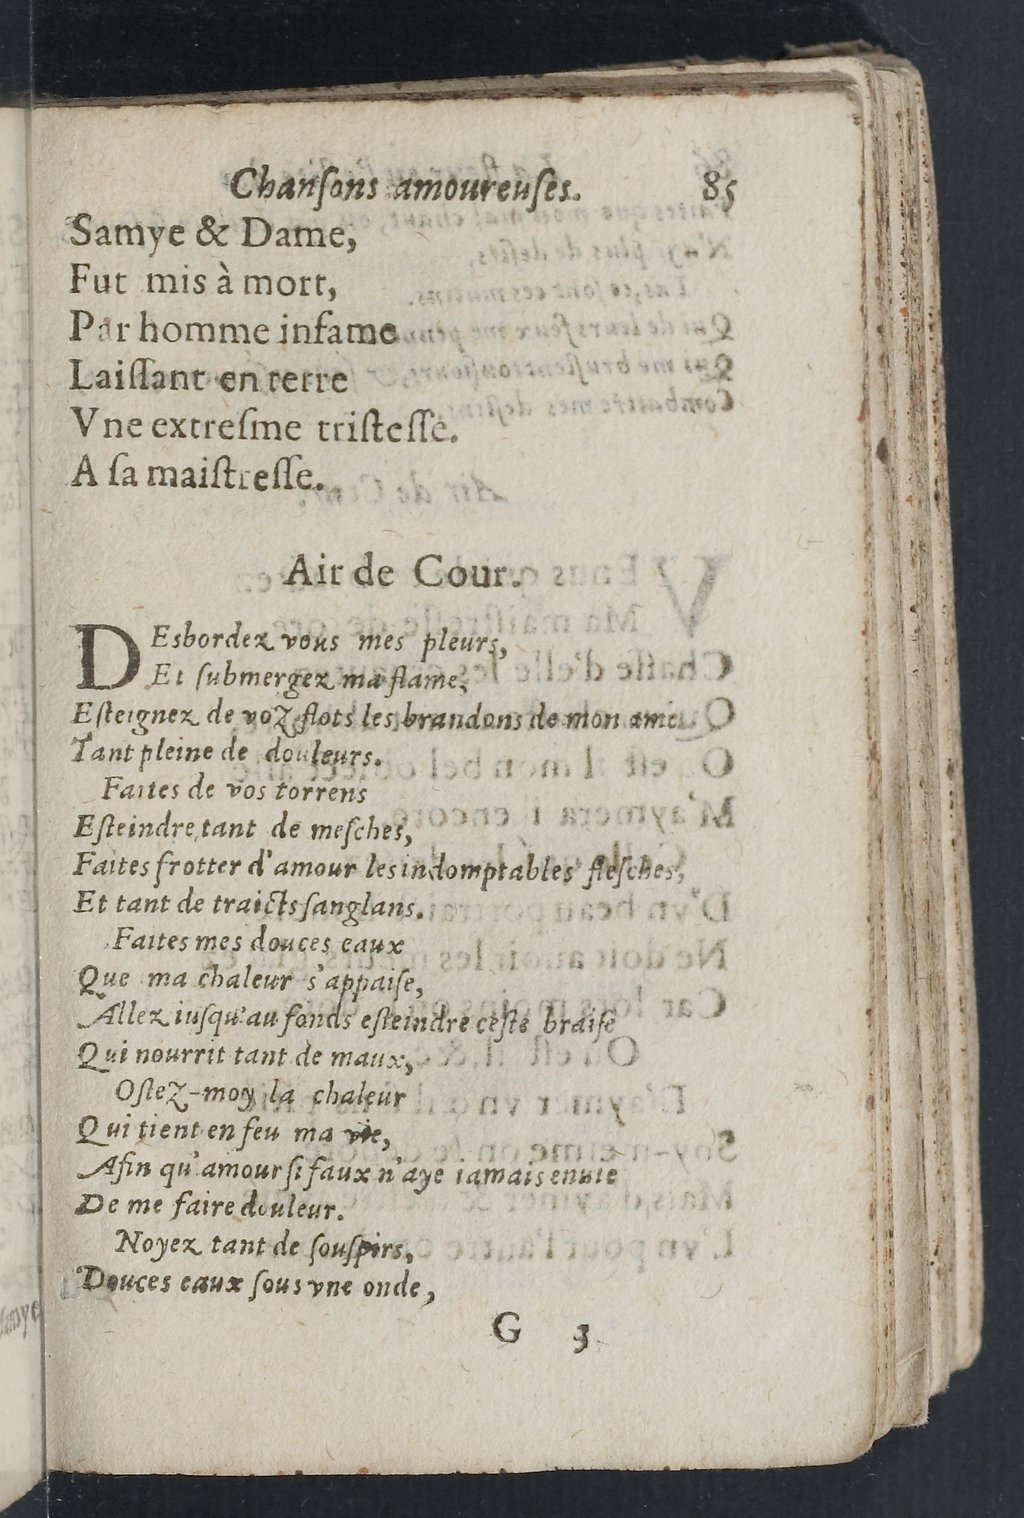 Chanſons amoureuſes. 85
Samye & Dame,
Fut mis à mort,
Par homme infame
Laiſſant en terre
Vne extreſme triſteſſe.
A ſa maiſtreſſe.
Air de Cour.
DEsbordez vous mes pleurs,
Et ſubmergez ma flame,
Eſteignez de voz flots les brandons de mon ame
Tant pleine de douleurs.
Faites de vos torrens
Eſteindre tant de meſches,
Faites frotter d'amour les indomptables fleſches,
Et tant de traicts ſanglans.
Faites mes douces eaux
Que ma chaleur s'appaiſe,
Allez iuſqu'au fonds eſteindre ceſte braiſe
Qui nourrit tant de maux,
Oſtez-moy la chaleur
Qui tient en feu ma vie,
Afin qu'amour ſi faux n'aye iamais enuie
De me faire douleur.
Noyez tant de ſouſpirs,
Douces eaux ſous vne onde,
G 3